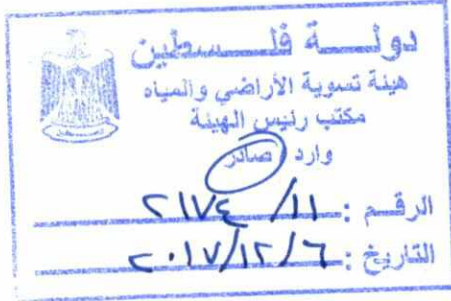 دولة فلسطين
هيئة تسوية الأراضي والمياه
مكتب رئيس الهيئة
وارد صادر
الرقم : ١١/ ٢١٧٤
التاريخ : ٢٠١٧/١٢/٦